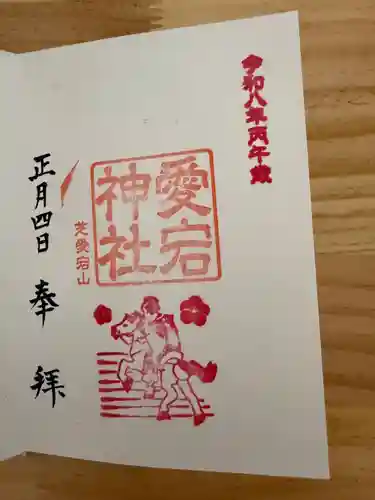 令和八年丙午歳
愛宕
神社
芝愛宕山
正月四日 奉拝